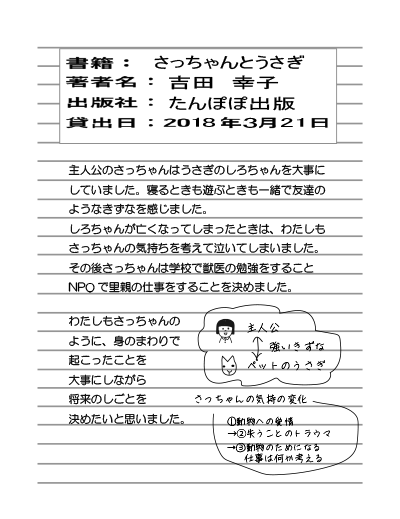 書籍： さっちゃんとうさぎ
著者名：吉田 幸子
出版社：たんぽぽ出版
貸出日：2018年3月21日
主人公のさっちゃんはうさぎのしろちゃんを大事に
していました。寝るときも遊ぶときも一緒で友達の
ようなきずなを感じました。
しろちゃんが亡くなってしまったときは、わたしも
さっちゃんの気持ちを考えて泣いてしまいました。
その後さっちゃんは学校で獣医の勉強をすること
NPOで里親の仕事をすることを決めました。
わたしもさっちゃんの
ように、身のまわりで
起こったことを
大事にしながら
将来のしごとを
決めたいと思いました。
主人公
強いきずな
ペットのうさぎ
さっちゃんの気持の変化
①動物への愛情
→②失うことのトラウマ
→③動物のためになる
仕事は何か考える